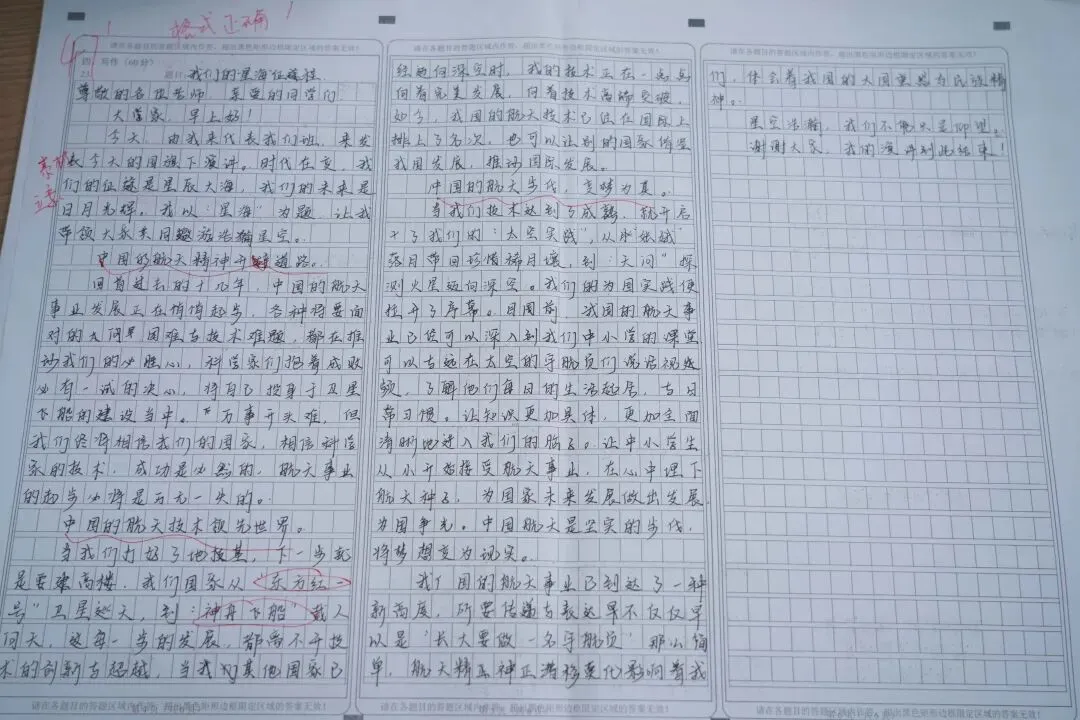 格式正确
47
请在各题目的答题区域内作答，超出黑色矩形边框限定区域的答案无效！
四、写作（60分）
23.
题目：我们的星海征途
尊敬的各位老师，亲爱的同学们：
大家，早上好！
今天，由我来代表我们班，来发
表今天的国旗下演讲。时代在变，我
们的征途是星辰大海，我们的未来是
日月光辉。我以“星海”为题，让我
带领大家共同遨游浩瀚星空。
中国的航天精神开辟道路。
回首过去的十几年，中国的航天
事业发展正在悄悄起步，各种将要面
对的大问困难与技术难题，都在推
动我们的必胜心，科学家们抱着成败
必有一试的决心，将自己投身于卫星
飞船的建设当中。万事开头难，但
我们终将相信我们的国家，相信科学
家的技术，成功是必然的，航天事业
的起步必将是万无一失的。
中国的航天技术领先世界。
当我们打好了地基，下一步就
是要建高楼，我们国家从“东方红一
号”卫星遨天，到“神舟飞船”载人
问天，这每一步的发展，都离不开技
术的创新与超越，当我们其他国家已
请在各题目的答题区域内作答，超出黑色矩形边框限定区域的答案无效！
请在各题目的答题区域内作答，超出黑色矩形边框限定区域的答案无效！
经迈向深空时，我的技术正在一点点
向着完美发展，向着技术高端突破，
如今，我国的航天技术已经在国际上
排上了名次，也可以让别的国家借鉴
我国发展，推动国际发展。
中国的航天时代，变梦为真。
当我们技术达到了成熟，就开启
了我们的“太空实践”，从“嫦娥”
落月带回珍惜稀月壤，到“天问”探
测火星迈向深空。我们的为国实践便
拉开了序幕。目前，我国的航天事
业已经可以深入到我们中小学的课堂
可以与远在太空的宇航员们说话视
频，了解他们每日的生活起居，与日
常习惯。让知识更加具体，更加全面
清晰地进入我们的脑子。让中小学生
从小开始接受航天事业，在心中埋下
航天种子，为国家未来发展做出发展
为国争光。中国航天是坚实的时代，
将梦想变为现实。
我国的航天事业已到达了一种
新高度，所要传递与表达早不仅仅早
以是“长大要做一名宇航员”那么简
单，航天精神正潜移变化影响着我
请在各题目的答题区域内作答，超出黑色矩形边框限定区域的答案无效！
请在各题目的答题区域内作答，超出黑色矩形边框限定区域的答案无效！
们，体会着我国的大国重器与民族精
神。
星空浩瀚，我们不能只是仰望。
谢谢大家，我的演讲到此结束！
请在各题目的答题区域内作答，超出黑色矩形边框限定区域的答案无效！